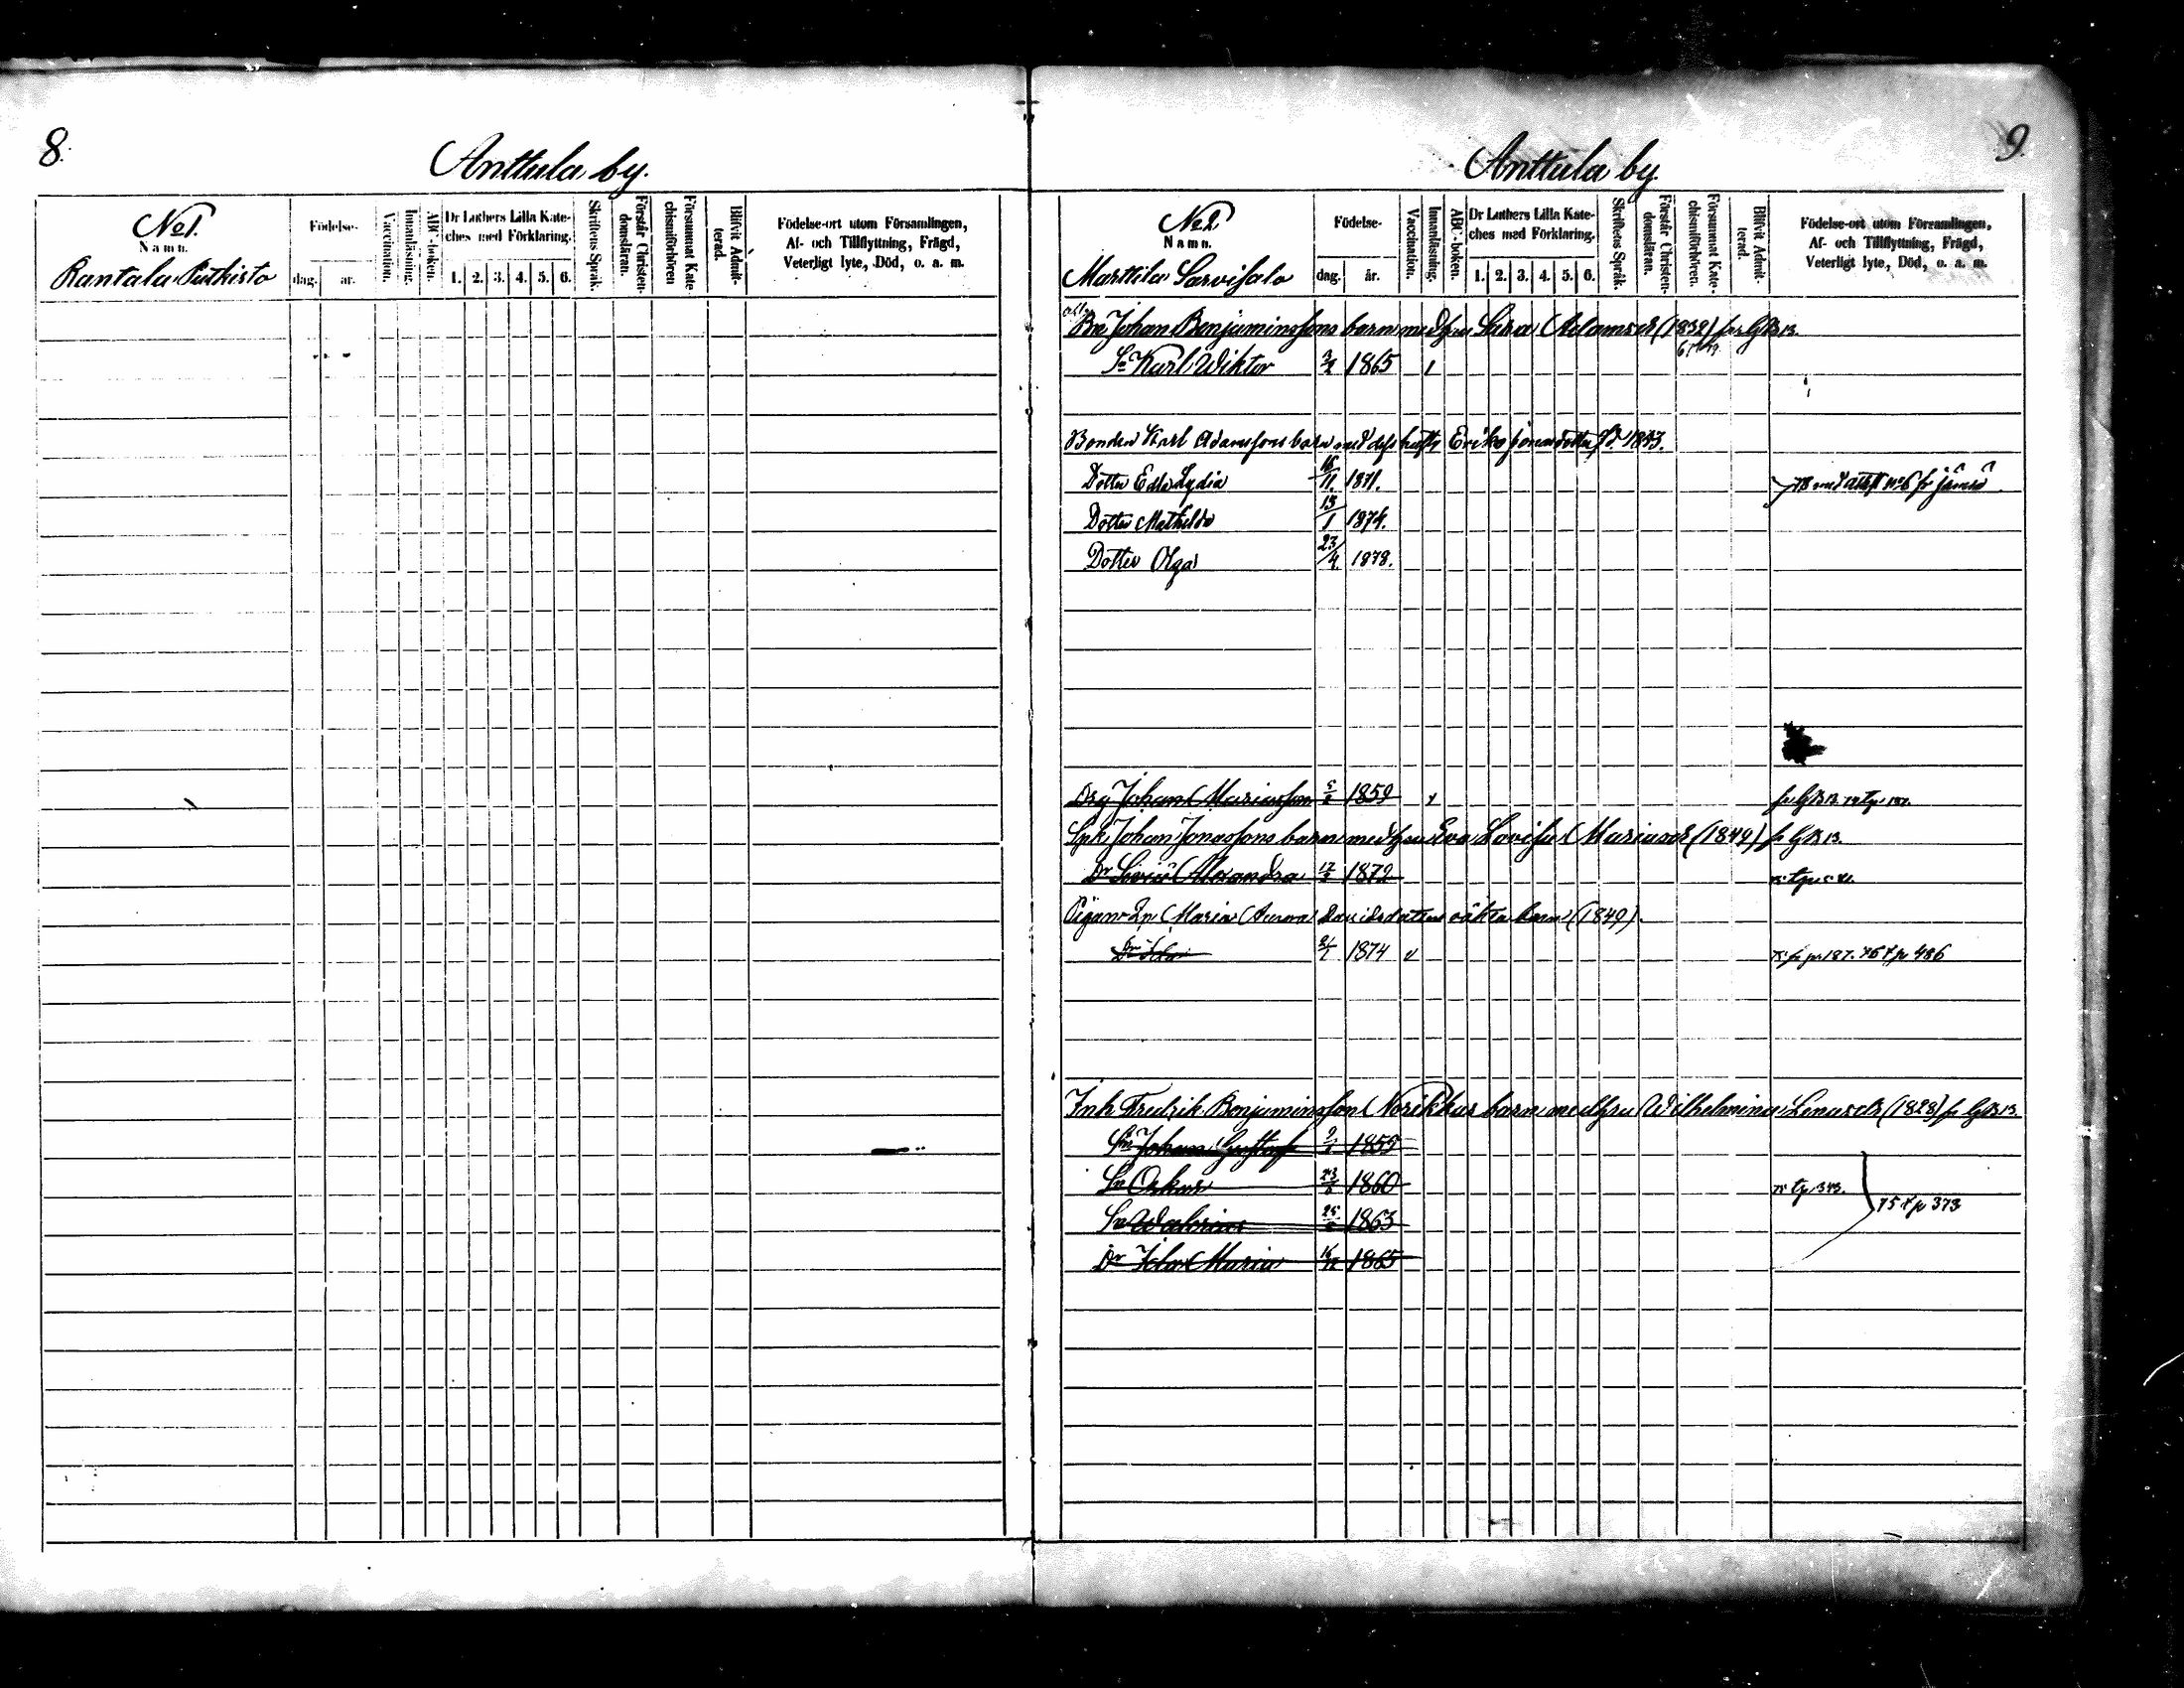 8.
Anttula by.
No 1.
Namn.
Rantala Putkisto
Födelse-
dag. år.
Vaccination.
Innanläsning.
ABC-boken.
Dr Luthers Lilla Kate-
ches med Förklaring.
1. 2. 3. 4. 5. 6.
Skriftens Språk.
Förstår Christen-
domsläran.
Försummat Kate-
chismiförhören
Blifvit Admit-
terad.
Födelse-ort utom Församlingen,
Af- och Tillflyttning, Frägd,
Veterligt lyte, Död, o. a. m.
9.
Anttula by.
No 2.
Namn.
Marttila Sarvisalo
Födelse-
dag. år.
Vaccination.
Innanläsning.
ABC-boken.
Dr Luthers Lilla Kate-
ches med Förklaring.
1. 2. 3. 4. 5. 6.
Skriftens Språk.
Förstår Christen-
domsläran.
Försummat Kate-
chismiförhören.
Blifvit Admit-
terad.
Födelse-ort utom Församlingen,
Af- och Tillflyttning, Frägd,
Veterligt lyte, Död, o. a. m.
Bn Johan Benjaminssons barn med hru Sara Adamsdr (1832)
Sn Karl Wiktor 1865
Bonden Karl Adamssons barn med dess hustru Erika 1853.
Dotter Edla Lydia 16/11. 1871.
Dotter Mathilda 13/1 1874.
Dotter Olga 23/4 1878.
Drg Johan Mariasson 1859
Johan Jonassons barn med hru Eva Lovisa Mariasdr (1849)
Dr Alexandra 1872
Pigan Maria Aurora Davidsdotters oäkta barn (1849).
Dr Ida 1874 fr p. 187. 76 t p 486
Inh Fredrik Benjaminsson barn med hru Wilhelmina Lenasdr (1828)
Sn Johan Gustaf 1859
Sn Oskar 23 1860 t p. 343.
75 t p 373
Sn 25 1863
Dr Ida Maria 1865